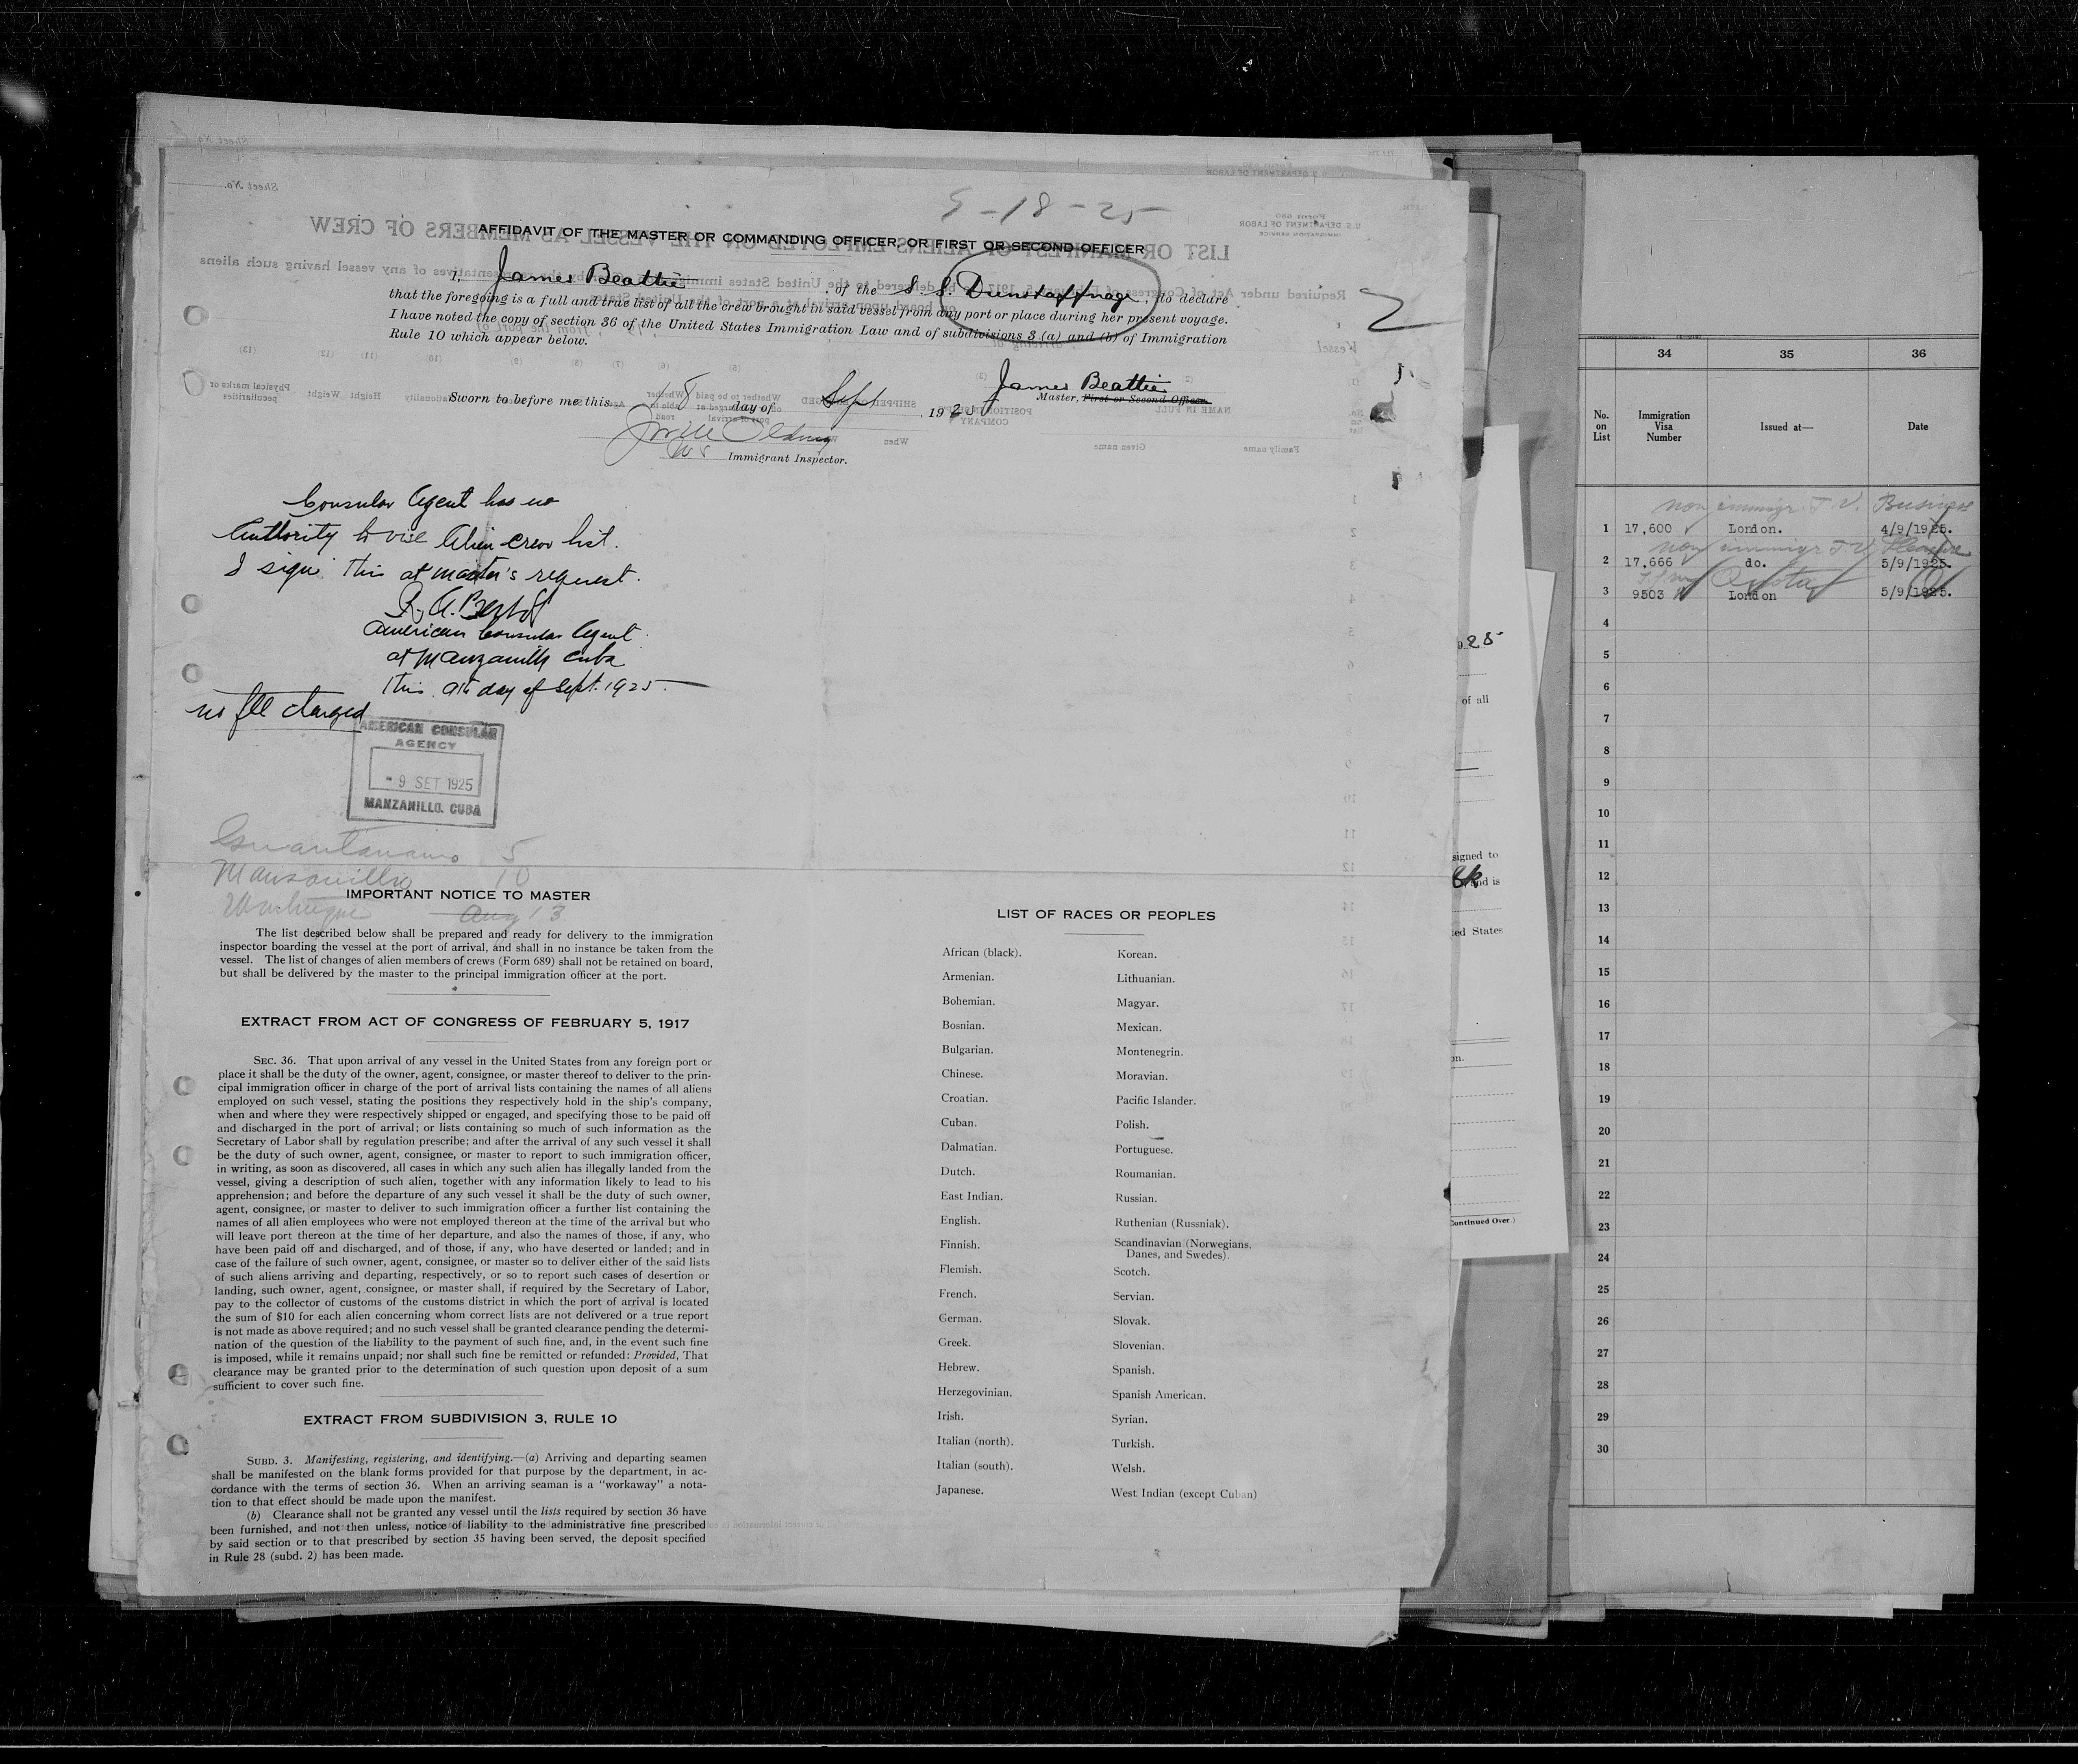 9-18-25
AFFIDAVIT OF THE MASTER OR COMMANDING OFFICER, OR FIRST OR SECOND OFFICER
I, James Beattie, of the S. S. Dunstaffnage, do declare
that the foregoing is a full and true list of all the crew brought in said vessel from any port or place during her present voyage.
I have noted the copy of section 36 of the United States Immigration Law and of subdivisions 3 (a) and (b) of Immigration
Rule 10 which appear below.
2
James Beattie
Master, First or Second Officer.
Sworn to before me this 18 day of Sept, 192
Immigrant Inspector.
Consular Agent has no
Authority to vise Alien crew list.
I sign this at master's request.
American Consular Agent
at Manzanillo Cuba
This 9th day of Sept. 1925
no fee charged
AMERICAN CONSULAR
AGENCY
- 9 SET 1925
MANZANILLO, CUBA
Guantanamo 5
Manzanillo 10
Aug 13
IMPORTANT NOTICE TO MASTER
The list described below shall be prepared and ready for delivery to the immigration
inspector boarding the vessel at the port of arrival, and shall in no instance be taken from the
vessel. The list of changes of alien members of crews (Form 689) shall not be retained on board,
but shall be delivered by the master to the principal immigration officer at the port.
EXTRACT FROM ACT OF CONGRESS OF FEBRUARY 5, 1917
SEC. 36. That upon arrival of any vessel in the United States from any foreign port or
place it shall be the duty of the owner, agent, consignee, or master thereof to deliver to the prin-
cipal immigration officer in charge of the port of arrival lists containing the names of all aliens
employed on such vessel, stating the positions they respectively hold in the ship's company,
when and where they were respectively shipped or engaged, and specifying those to be paid off
and discharged in the port of arrival; or lists containing so much of such information as the
Secretary of Labor shall by regulation prescribe; and after the arrival of any such vessel it shall
be the duty of such owner, agent, consignee, or master to report to such immigration officer,
in writing, as soon as discovered, all cases in which any such alien has illegally landed from the
vessel, giving a description of such alien, together with any information likely to lead to his
apprehension; and before the departure of any such vessel it shall be the duty of such owner,
agent, consignee, or master to deliver to such immigration officer a further list containing the
names of all alien employees who were not employed thereon at the time of the arrival but who
will leave port thereon at the time of her departure, and also the names of those, if any, who
have been paid off and discharged, and of those, if any, who have deserted or landed; and in
case of the failure of such owner, agent, consignee, or master so to deliver either of the said lists
of such aliens arriving and departing, respectively, or so to report such cases of desertion or
landing, such owner, agent, consignee, or master shall, if required by the Secretary of Labor,
pay to the collector of customs of the customs district in which the port of arrival is located
the sum of $10 for each alien concerning whom correct lists are not delivered or a true report
is not made as above required; and no such vessel shall be granted clearance pending the determi-
nation of the question of the liability to the payment of such fine, and, in the event such fine
is imposed, while it remains unpaid; nor shall such fine be remitted or refunded: Provided, That
clearance may be granted prior to the determination of such question upon deposit of a sum
sufficient to cover such fine.
EXTRACT FROM SUBDIVISION 3, RULE 10
SUBD. 3. Manifesting, registering, and identifying.—(a) Arriving and departing seamen
shall be manifested on the blank forms provided for that purpose by the department, in ac-
cordance with the terms of section 36. When an arriving seaman is a "workaway" a nota-
tion to that effect should be made upon the manifest.
(b) Clearance shall not be granted any vessel until the lists required by section 36 have
been furnished, and not then unless, notice of liability to the administrative fine prescribed
by said section or to that prescribed by section 35 having been served, the deposit specified
in Rule 28 (subd. 2) has been made.
LIST OF RACES OR PEOPLES
African (black).
Armenian.
Bohemian.
Bosnian.
Bulgarian.
Chinese.
Croatian.
Cuban.
Dalmatian.
Dutch.
East Indian.
English.
Finnish.
Flemish.
French.
German.
Greek.
Hebrew.
Herzegovinian.
Irish.
Italian (north).
Italian (south).
Japanese.
Korean.
Lithuanian.
Magyar.
Mexican.
Montenegrin.
Moravian.
Pacific Islander.
Polish.
Portuguese.
Roumanian.
Russian.
Ruthenian (Russniak).
Scandinavian (Norwegians,
Danes, and Swedes).
Scotch.
Servian.
Slovak.
Slovenian.
Spanish.
Spanish American.
Syrian.
Turkish.
Welsh.
West Indian (except Cuban)
25
of all
signed to
and is
ted States
on.
Continued Over.)
34 35 36
No. on List
Immigration Visa Number
Issued at—
Date
non immigr T.V. Business
1 17,600 London. 4/9/1925.
non immigr T.V. Pleasure
2 17,666 do. 5/9/1925.
Quota
3 9503 London 5/9/1925.
4
5
6
7
8
9
10
11
12
13
14
15
16
17
18
19
20
21
22
23
24
25
26
27
28
29
30